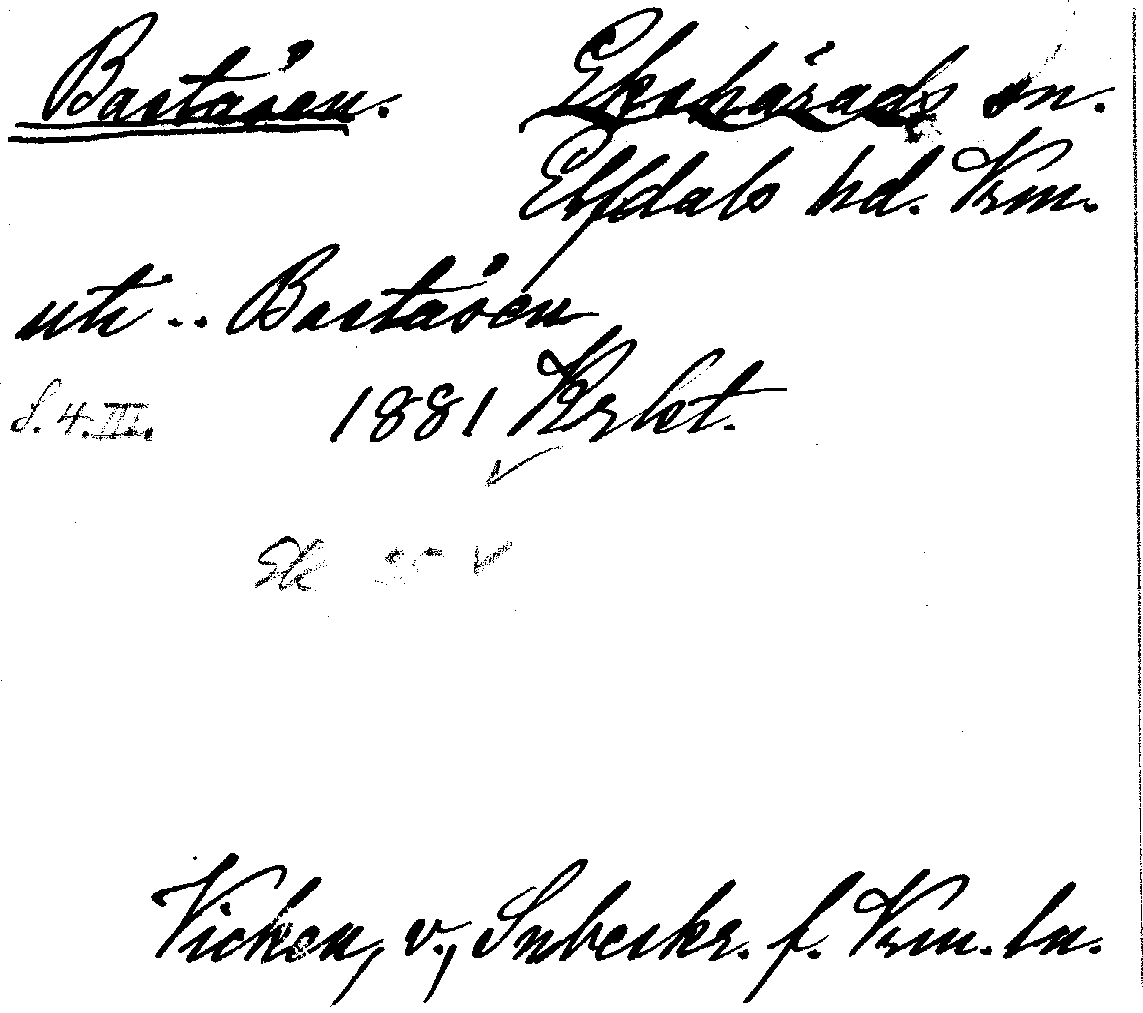 Baståsen. Ekshärads sn.
Elfdals hd. Vrm.
uti .. Baståsen
S. 4. III. 1881 Krbt.
Ek 35
Vicken, v., Snbeskr. f. Vrm. ln.